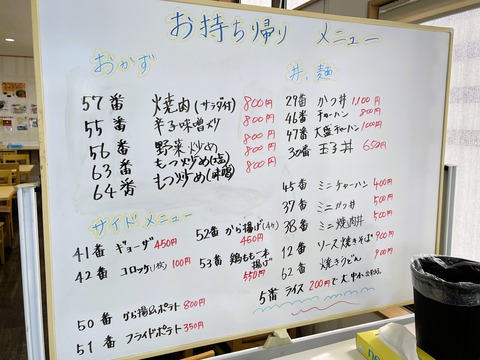 お持ち帰り メニュー
おかず
57番 焼肉(サラダ付) 800円
55番 辛子味噌入り 800円
56番 野菜炒め 800円
63番 もつ炒め(塩) 800円
64番 もつ炒め(味噌) 800円
サイドメニュー
41番 ギョーザ 450円
42番 コロッケ(1枚) 100円
50番 から揚げ&ポテト 800円
51番 フライドポテト 350円
52番 から揚げ(4ケ) 450円
53番 鶏もも一本揚げ 550円
丼、麺
29番 かつ丼 1,100円
46番 チャーハン 800円
47番 大盛チャーハン 1000円
30番 玉子丼 650円
45番 ミニチャーハン 400円
37番 ミニかつ丼 500円
38番 ミニ焼肉丼 500円
12番 ソース焼きそば 900円
62番 焼きうどん 900円
5番 ライス 200円で大中小